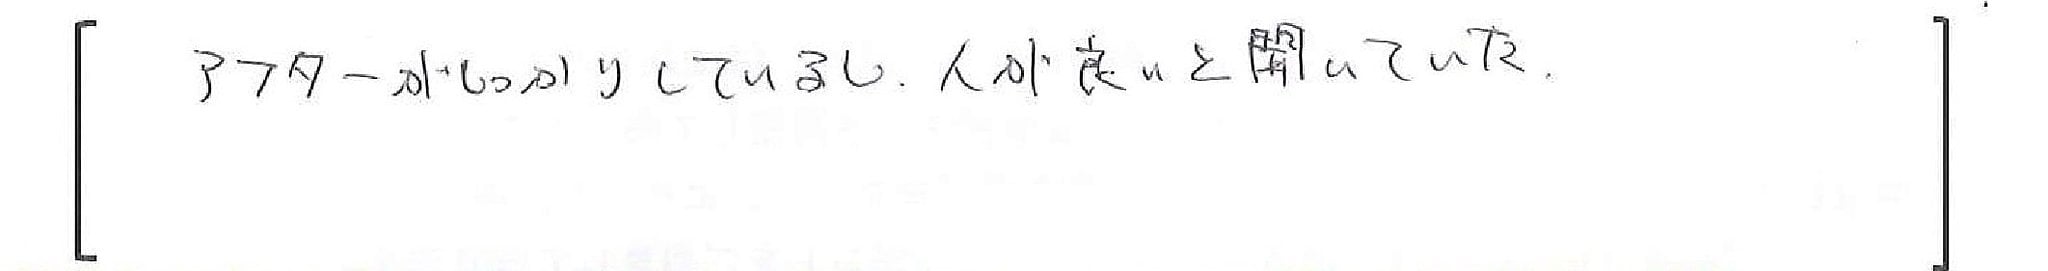 アフターがしっかりしているし、人が良いと聞いていた。